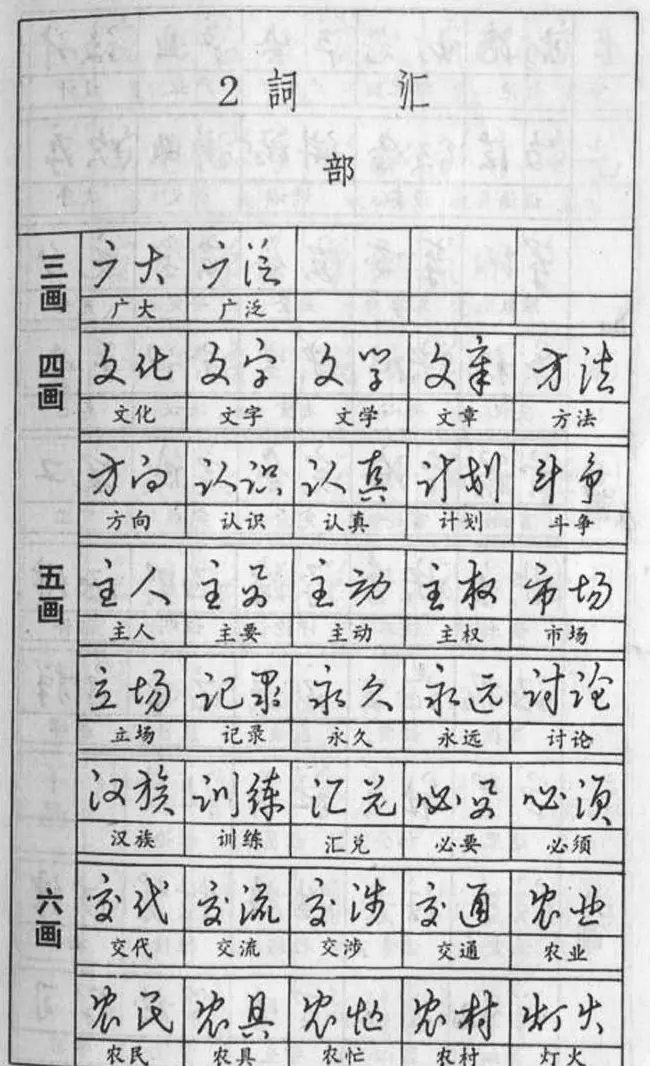 2 詞 汇
部
三画
广大 广泛
广大 广泛
四画
文化 文字 文学 文章 方法
文化 文字 文学 文章 方法
方向 认识 认真 计划 斗争
方向 认识 认真 计划 斗争
五画
主人 主要 主动 主权 市场
主人 主要 主动 主权 市场
立场 记录 永久 永远 讨论
立场 记录 永久 永远 讨论
汉族 训练 汇兑 必要 必须
汉族 训练 汇兑 必要 必须
六画
交代 交流 交涉 交通 农业
交代 交流 交涉 交通 农业
农民 农具 农忙 农村 灯火
农民 农具 农忙 农村 灯火